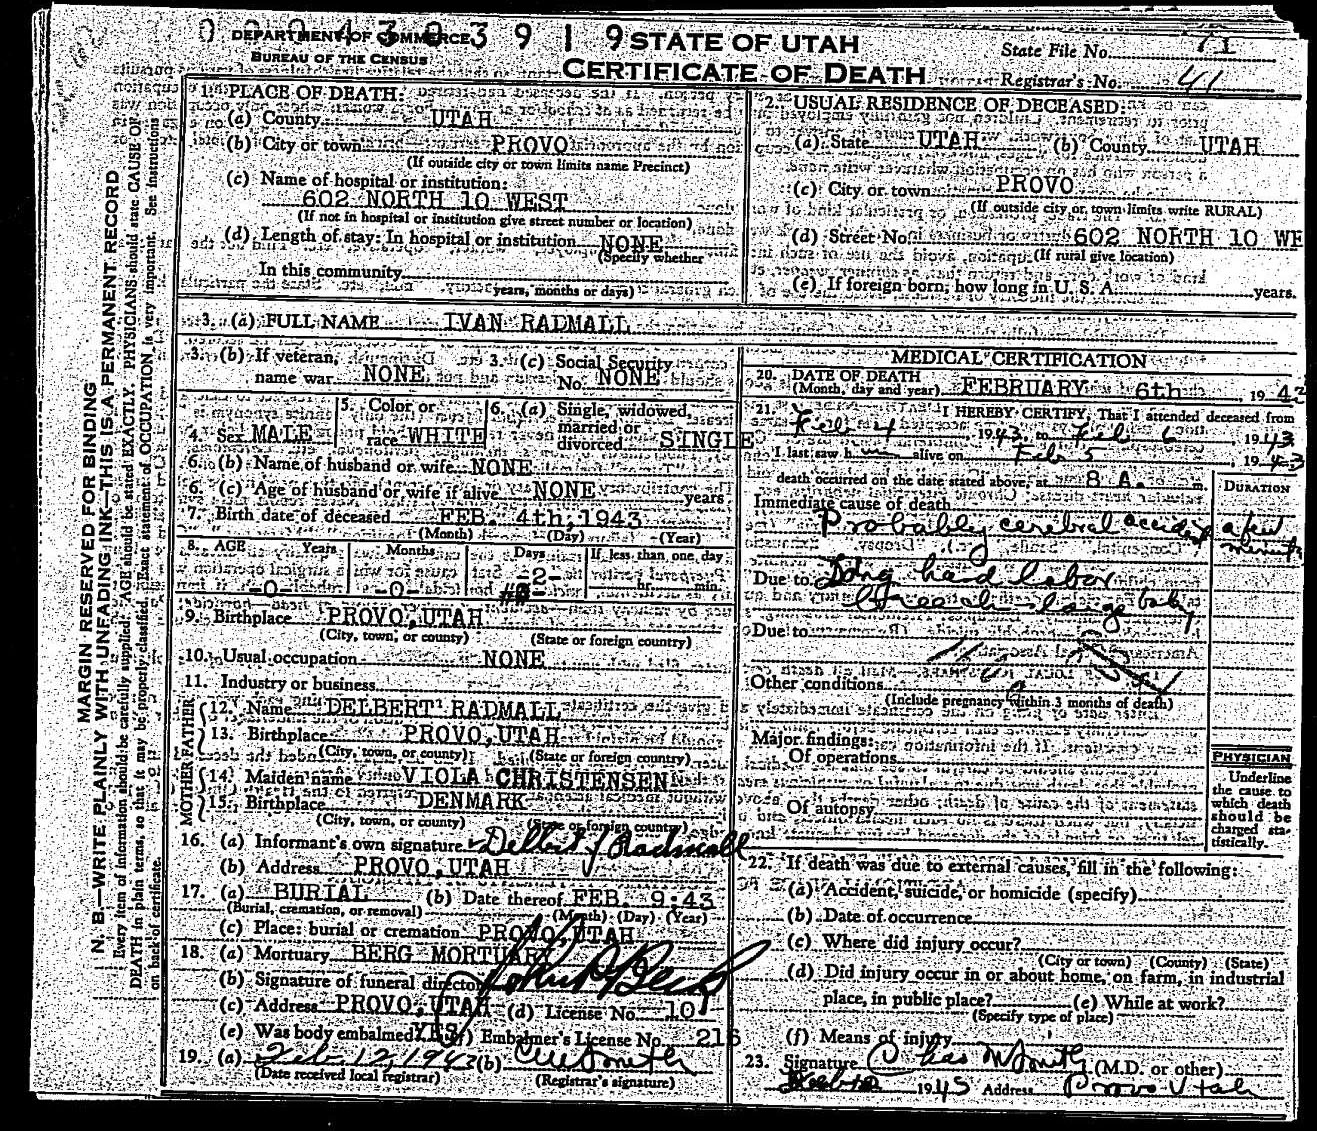 DEPARTMENT OF COMMERCE
BUREAU OF THE CENSUS
STATE OF UTAH
CERTIFICATE OF DEATH
State File No. 71
Registrar's No. 41
MARGIN RESERVED FOR BINDING
N. B.—WRITE PLAINLY WITH UNFADING INK—THIS IS A PERMANENT RECORD
Every item of information should be carefully supplied. AGE should be stated EXACTLY. PHYSICIANS should state CAUSE OF
DEATH in plain terms, so that it may be properly classified. Exact statement of OCCUPATION is very important. See instructions
on back of certificate.
1. PLACE OF DEATH:
(a) County UTAH
(b) City or town PROVO
(If outside city or town limits name Precinct)
(c) Name of hospital or institution:
602 NORTH 10 WEST
(If not in hospital or institution give street number or location)
(d) Length of stay: In hospital or institution NONE
(Specify whether
In this community
years, months or days)
2. USUAL RESIDENCE OF DECEASED:
(a) State UTAH (b) County UTAH
(c) City or town PROVO
(If outside city or town limits write RURAL)
(d) Street No. 602 NORTH 10 WE
(If rural give location)
(e) If foreign born, how long in U. S. A. years.
3. (a) FULL NAME IVAN RADMALL
3. (b) If veteran, name war NONE
3. (c) Social Security No. NONE
4. Sex MALE
5. Color or race WHITE
6. (a) Single, widowed, married or divorced SINGLE
6. (b) Name of husband or wife NONE
6. (c) Age of husband or wife if alive NONE years
7. Birth date of deceased FEB. 4th, 1943
(Month) (Day) (Year)
8. AGE Years Months Days If less than one day
-0- -0- -2- hr. min.
9. Birthplace PROVO, UTAH
(City, town, or county) (State or foreign country)
10. Usual occupation NONE
11. Industry or business
FATHER
12. Name DELBERT RADMALL
13. Birthplace PROVO, UTAH
(City, town, or county) (State or foreign country)
MOTHER
14. Maiden name VIOLA CHRISTENSEN
15. Birthplace DENMARK
(City, town, or county) (State or foreign country)
16. (a) Informant's own signature Delbert J Radmall
(b) Address PROVO, UTAH
17. (a) BURIAL (b) Date thereof FEB. 9:43
(Burial, cremation, or removal) (Month) (Day) (Year)
(c) Place: burial or cremation PROVO, UTAH
18. (a) Mortuary BERG MORTUARY
(b) Signature of funeral director
(c) Address PROVO, UTAH (d) License No. 101
(e) Was body embalmed YES (f) Embalmer's License No. 216
19. (a) Feb. 12, 1943 (b)
(Date received local registrar) (Registrar's signature)
MEDICAL CERTIFICATION
20. DATE OF DEATH
(Month, day and year) FEBRUARY 6th, 1943
21. I HEREBY CERTIFY, That I attended deceased from
Feb 4, 1943, to Feb 6, 1943
I last saw him alive on Feb 5, 1943
death occurred on the date stated above, at 8 A. m.
DURATION
Immediate cause of death
Probably cerebral accident a few minutes
Due to Long hard labor
Breech large baby
Due to
Other conditions
(Include pregnancy within 3 months of death)
Major findings:
Of operations
Of autopsy
PHYSICIAN
Underline
the cause to
which death
should be
charged sta-
tistically.
22. If death was due to external causes, fill in the following:
(a) Accident, suicide, or homicide (specify)
(b) Date of occurrence
(c) Where did injury occur?
(City or town) (County) (State)
(d) Did injury occur in or about home, on farm, in industrial
place, in public place? (e) While at work?
(Specify type of place)
(f) Means of injury
23. Signature Chas M Smith (M.D. or other)
1943 Address Provo Utah